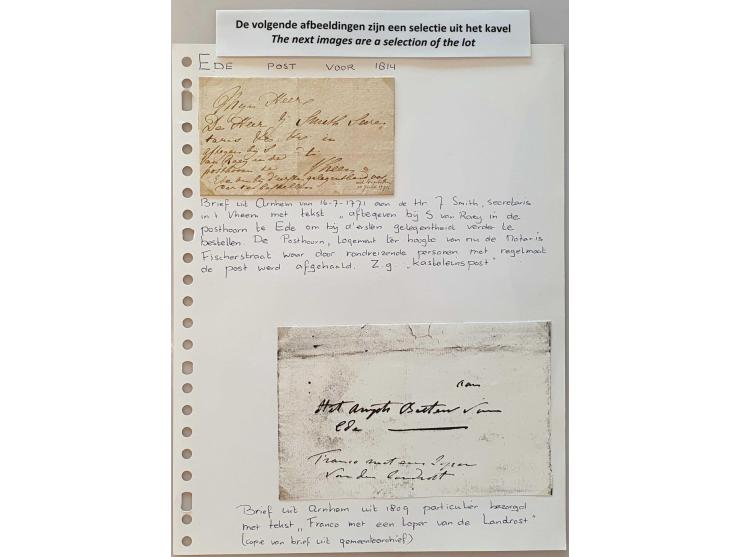 De volgende afbeeldingen zijn een selectie uit het kavel
The next images are a selection of the lot
EDE POST VOOR 1814
Mijn Heer
De Heer J Smith Secre,
taris
afgegeven bij S
van Raey in de
posthoorn te
Ede om bij d'ersten gelegentheid
Brief uit Arnhem van 16-7-1771 aan de Hr J Smith, Secretaris
in 't Vheem met tekst „afgegeven bij S van Raey in de
posthoorn te Ede om bij d'ersten gelegentheid verder te
bestellen. De Posthoorn, Logement ter hoogte van nu de Notaris
Fischerstraat waar door rondreizende personen met regelmaat
de post werd afgehaald. Z.g. „Kasteleinspost"
aan
Het Ampts Bestuur van
Ede
Franco met een Loper
van den Landrost
Brief uit Arnhem uit 1809 particulier bezorgd
met tekst „Franco met een Loper van de Landrost"
(copie van brief uit gemeentearchief)